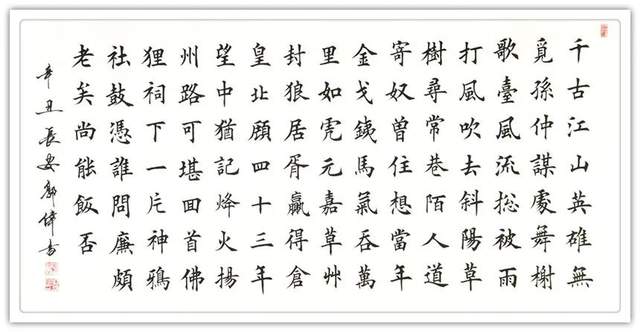 千古江山英雄無
覓孫仲謀處舞榭
歌臺風流総被雨
打風吹去斜陽草
樹尋常巷陌人道
寄奴曾住想當年
金戈銕馬氣吞萬
里如虎元嘉草艸
封狼居胥贏得倉
皇北顧四十三年
望中猶記烽火揚
州路可堪回首佛
狸祠下一片神鴉
社鼓憑誰問廉頗
老矣尚能飯否
辛丑長安郭偉書